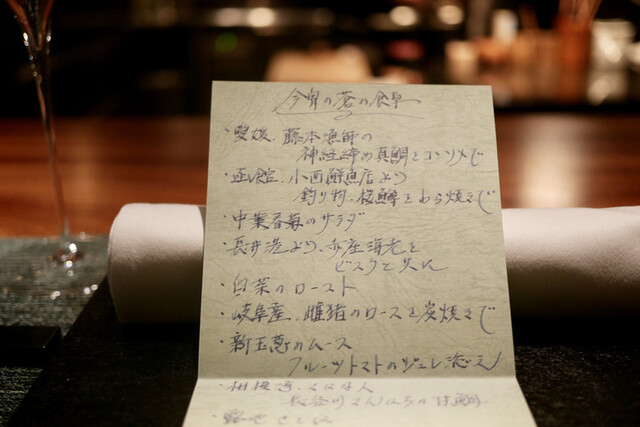 今宵の蒼の食卓
・愛媛、藤本漁師の
神経締め真鯛をコンソメで
・函館、小西鮮魚店より
釣り物、桜鱒をわら焼きで
・中葉春菊のサラダ
・長井港より、赤座海老を
ビスクと共に
・白菜のロースト
・岐阜産、雌猪のロースを炭焼きで
・新玉葱のムース
フルーツトマトのジュレ添え
長谷川さんはちの甘鯛